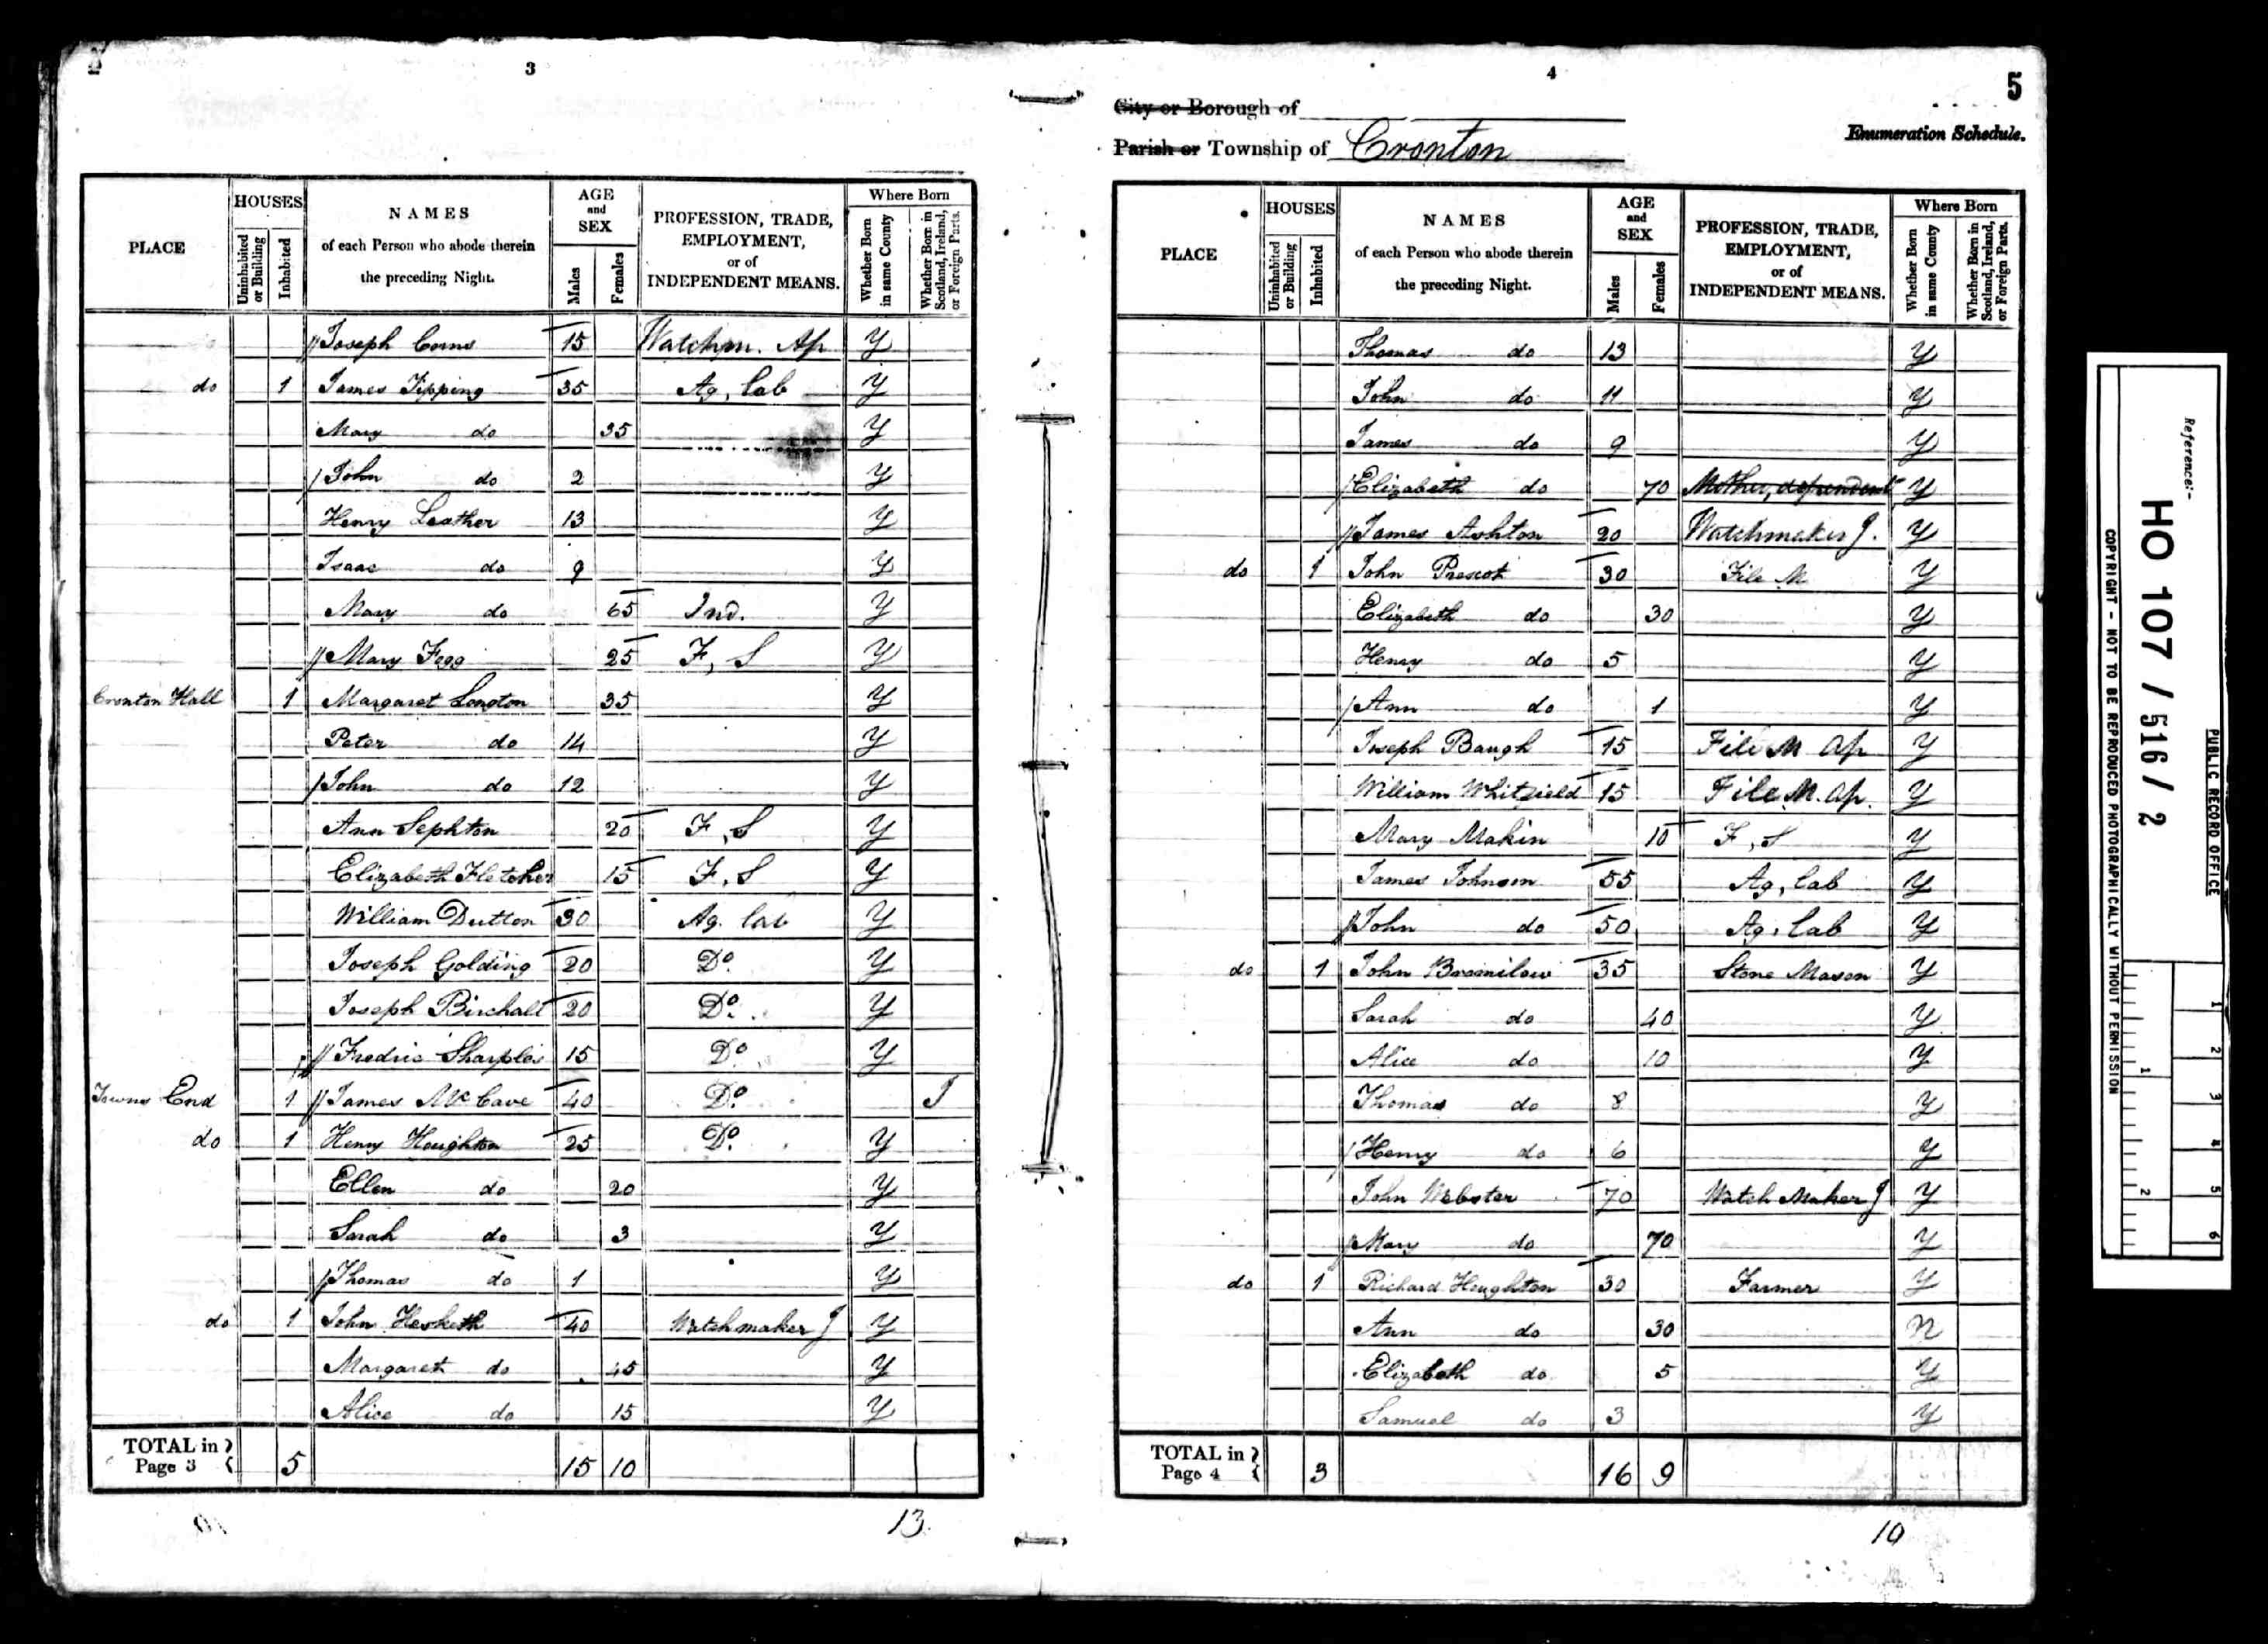 2
3
PLACE
HOUSES
Uninhabited or Building
Inhabited
NAMES
of each Person who abode therein
the preceding Night.
AGE
and
SEX
Males
Females
PROFESSION, TRADE,
EMPLOYMENT,
or of
INDEPENDENT MEANS.
Where Born
Whether Born in same County
Whether Born in Scotland, Ireland, or Foreign Parts.
Joseph Corns 15 Watchm. Ap Y
do 1 James Tipping 35 Ag. Lab Y
Mary do 35 Y
John do 2 Y
Henry Leather 13 Y
Isaac do 9 Y
Mary do 65 Ind. Y
Mary Fogg 25 F, S Y
Cronton Hall 1 Margaret Longton 35 Y
Peter do 14 Y
John do 12 Y
Ann Sephton 20 F, S Y
Elizabeth Fletcher 15 F, S Y
William Dutton 30 Ag. Lab Y
Joseph Golding 20 Do. Y
Joseph Birchall 20 Do. Y
Fredric Sharples 15 Do Y
Towns End 1 James McCave 40 Do. I
do 1 Henry Houghton 25 Do. Y
Ellen do 20 Y
Sarah do 3 Y
Thomas do 1 Y
do 1 John Hesketh 40 Watchmaker J Y
Margaret do 45 Y
Alice do 15 Y
TOTAL in Page 3 5 15 10
13
4
5
City or Borough of
Parish or Township of Cronton
Enumeration Schedule.
PLACE
HOUSES
Uninhabited or Building
Inhabited
NAMES
of each Person who abode therein
the preceding Night.
AGE
and
SEX
Males
Females
PROFESSION, TRADE,
EMPLOYMENT,
or of
INDEPENDENT MEANS.
Where Born
Whether Born in same County
Whether Born in Scotland, Ireland, or Foreign Parts.
Thomas do 13 Y
John do 11 Y
James do 9 Y
Elizabeth do 70 Mother, dependent Y
James Ashton 20 Watchmaker J. Y
do 1 John Prescot 30 File M Y
Elizabeth do 30 Y
Henry do 5 Y
Ann do 1 Y
Joseph Baugh 15 File M Ap Y
William Whitfield 15 File M. Ap. Y
Mary Makin 10 F, S Y
James Johnson 55 Ag. Lab Y
John do 50 Ag. Lab Y
do 1 John Bromilow 35 Stone Mason Y
Sarah do 40 Y
Alice do 10 Y
Thomas do 8 Y
Henry do 6 Y
John Webster 70 Watch Maker J Y
Mary do 70 Y
do 1 Richard Houghton 30 Farmer Y
Ann do 30 N
Elizabeth do 5 Y
Samuel do 3 Y
TOTAL in Page 4 3 16 9
10
Reference:-
HO 107 / 516 / 2
PUBLIC RECORD OFFICE
COPYRIGHT - NOT TO BE REPRODUCED PHOTOGRAPHICALLY WITHOUT PERMISSION
1 2 3 4 5 6
1 2